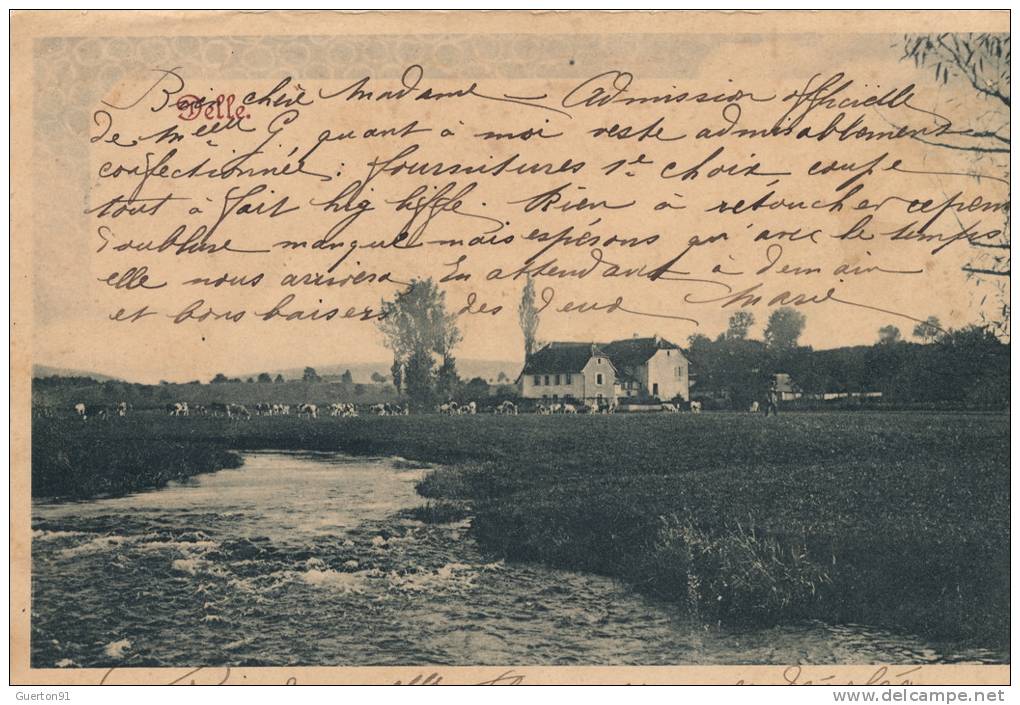 Delle.
Bien chère Madame – Admission officielle
de Melle G quant à moi reste admirablement
confectionnée : fournitures 1e choix, coupe
tout à fait hig liffe. Rien à retoucher
doublure manque mais espérons qu'avec le temps
elle nous arrivera En attendant à demain
et bons baisers des deux Marie
Guerton91
www.delcampe.net